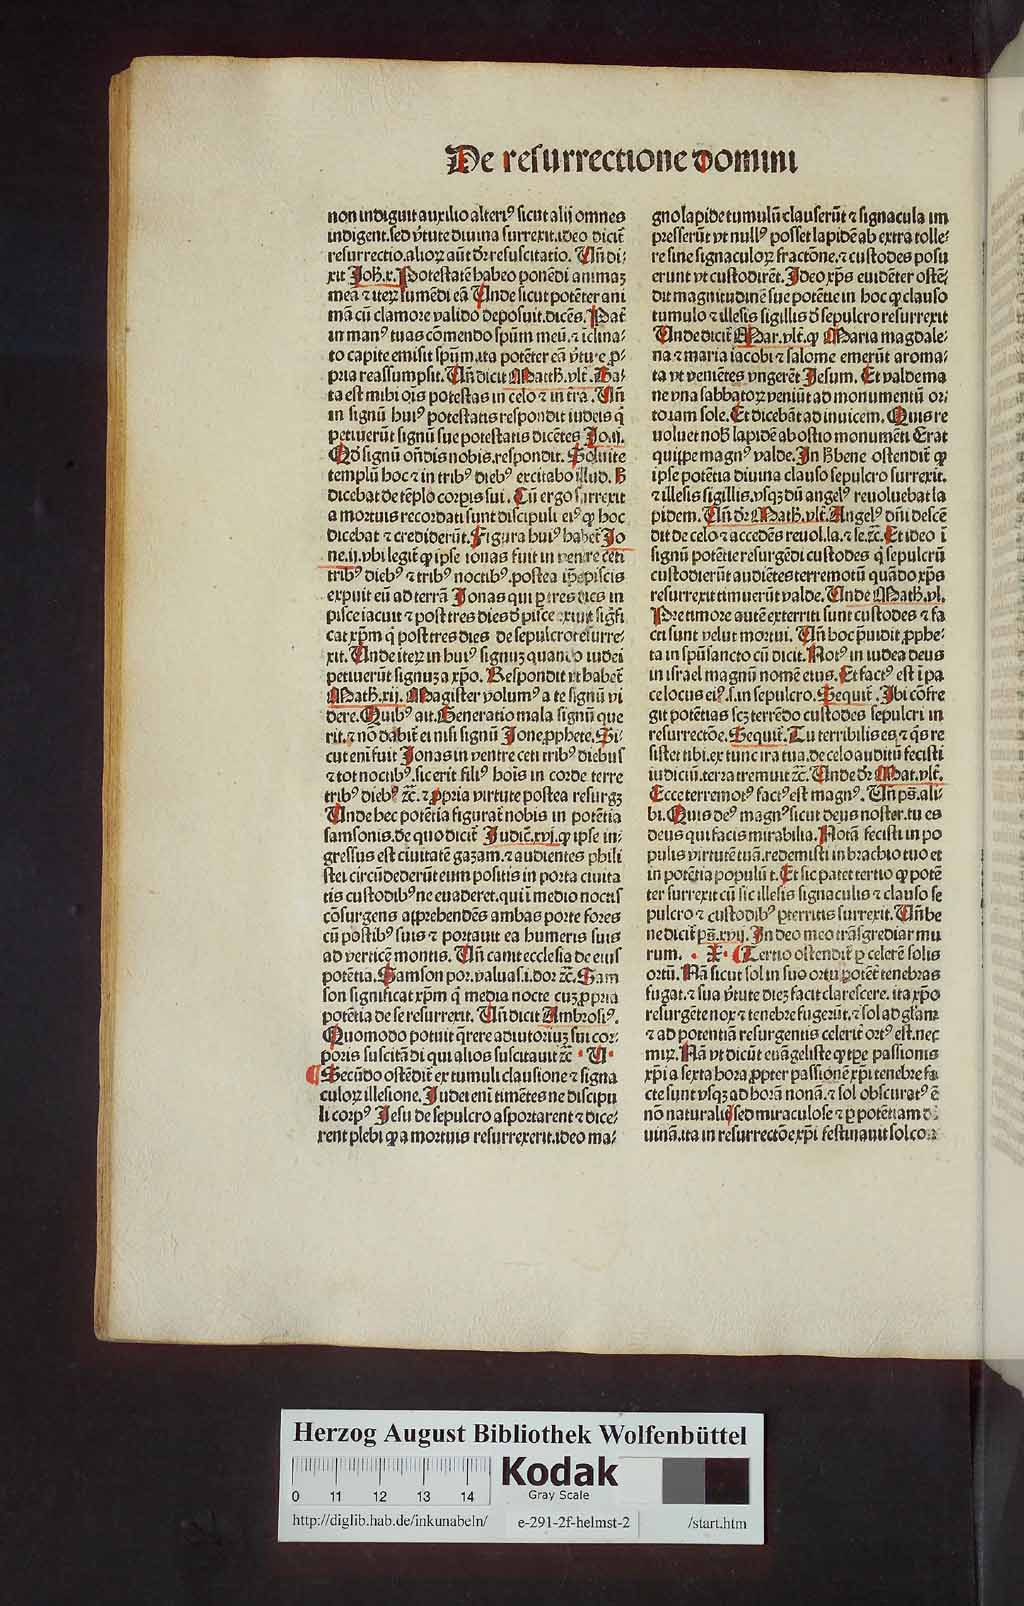 De resurrectione domini
non indiguit auxilio alteriꝰ sicut alij omnes
indigent. sed v̓tute diuina surrexit. ideo dicit᷑
resurrectio. alioꝝ aūt dr̄ resuscitatio. Un̄ di⸗
xit Joh̄. x. Potestatē habeo ponēdi animaꝫ
meā ⁊ iteꝝ sumēdi eā Unde sicut potēter ani
mā cū clamore valido deposuit. dicēs. Pat᷑
in manꝰ tuas cōmendo spūm meū. ⁊ īclina⸗
to capite emisit spūm. ita potēter eā v̓tute ꝓ⸗
pria reassumpsit. Un̄ dicit Matth. vlt̄. Da⸗
ta est mihi oīs potestas in celo ⁊ in t̄ra. Un̄
in signū huiꝰ potestatis respondit iudeis q̄
petiuerūt signū sue potestatis dicētes Jo. ij.
Qd̄ signū on̄dis nobis. respondit. Soluite
templū hoc ⁊ in tribꝰ diebꝰ excitabo illud. H̄
dicebat de tēplo corpis sui. Cū ergo surrexit
a mortuis recordati sunt discipuli eiꝰ ꝙ hoc
dicebat ⁊ crediderūt. Figura huiꝰ habet᷑ Jo
ne. ij. vbi legit᷑ ꝙ ipse ionas fuit in ventre ceti
tribꝰ diebꝰ ⁊ tribꝰ noctibꝰ. postea ip̄e piscis
expuit eū ad terrā Jonas qui ꝑ tres dies in
pisce iacuit ⁊ post tres dies d̓ pisce exiuit sig̅fi
cat xp̄m q̇ post tres dies de sepulcro resurre⸗
xit. Unde iteꝝ in huiꝰ signuꝫ quando iudei
petiuerūt signuꝫ a xp̄o. Respondit vt habet᷑
Math̄. xij. Magister volumꝰ a te signū vi
dere. Quibꝰ ait. Generatio mala signū que
rit. ⁊ nō dabit᷑ ei nisi signū Jone ꝓphete. Si
cut eni᷑ fuit Jonas in ventre ceti tribꝰ diebus
⁊ tot noctibꝰ. sic erit filiꝰ hoīs in corde terre
tribꝰ diebꝰ ⁊c̄. ⁊ ꝓpria virtute postea resurgꝫ
Unde hec potētia figurat᷑ nobis in potētia
samsonis. de quo dicit᷑ Judic̄. xvj. ꝙ ipse in⸗
gressus est ciuitatē gazam. ⁊ audientes phili
stei circūdederūt eum positis in porta ciuita
tis custodibꝰ ne euaderet. qui ī medio noctis
cōsurgens apprehendēs ambas porte fores
cū postibꝰ suis ⁊ portauit ea humeris suis
ad verticē montis. Un̄ canit ecclesia de eius
potētia. Samson por. valuas. i. dor ⁊c̄. Sam
son significat xp̄m q̇ media nocte cuꝫ ꝓpria
potētia de se resurrexit. Un̄ dicit Ambrosiꝰ.
Quomodo potuit q̄rere adiutoriuꝫ sui cor⸗
poris suscitādi qui alios suscitauit ⁊c̄ · U ·
¶ Secūdo ostēdit᷑ ex tumuli clausione ⁊ signa
culoꝝ illesione. Judei eni timētes ne discipu
li corpꝰ Jesu de sepulcro asportarent ⁊ dice⸗
rent plebi ꝙ a mortuis resurrexerit. ideo ma⸗
gno lapide tumulū clauserūt ⁊ signacula im
presserūt vt nullꝰ posset lapidē ab extra tolle⸗
re sine signaculoꝝ fractōne. ⁊ custodes posu
erunt vt custodirēt. Ideo xp̄s euidēter ostē⸗
dit magnitudinē sue potētie in hoc ꝙ clauso
tumulo ⁊ illesis sigillis d̓ sepulcro resurrexit
Unde dicit᷑ Mar. vlt̄. ꝙ Maria magdale⸗
na ⁊ maria iacobi ⁊ salome emerūt aroma⸗
ta vt veniētes vngerēt Jesum. Et valde ma
ne vna sabbatoꝝ veniūt ad monumentū or⸗
to iam sole. Et dicebāt ad inuicem. Quis re
uoluet nob̄ lapidē ab ostio monumēti Erat
quippe magnꝰ valde. In h̄ bene ostendit᷑ ꝙ
ipse potētia diuina clauso sepulcro surrexit.
⁊ illesis sigillis. vsqꝫ dū angelꝰ reuoluebat la
pidem. Un̄ dr̄ Math̄. vlt̄. Angelꝰ dn̄i descē
dit de celo ⁊ accedēs reuol. la. ⁊ se. ⁊c̄. Et ideo ī
signū potētie resurgēdi custodes q̇ sepulcrū
custodierūt audiētes terremotū quādo xp̄s
resurrexit timuerūt valde. Unde Math̄. vl.
Pre timore autē exterriti sunt custodes ⁊ fa
cti sunt velut mortui. Un̄ hoc p̄uidit ꝓphe⸗
ta in spū sancto cū dicit. Notꝰ in iudea deus
in israel magnū nomē eius. Et factꝰ est ī pa
ce locus eiꝰ. s. in sepulcro. Sequit᷑. Ibi cōfre
git potētias scꝫ terrēdo custodes sepulcri in
resurrectōe. Sequit᷑. Tu terribilis es. ⁊ q̇s re
sistet tibi. ex tunc ira tua. de celo auditū fecisti
iudiciū. terra tremuit ⁊c̄. Unde dr̄ Mat. vlt̄.
Ecce terremotꝰ factꝰ est magnꝰ. Un̄ ps̄. ali⸗
bi. Quis deꝰ magnꝰ sicut deus noster. tu es
deus qui facis mirabilia. Notā fecisti in po
pulis virtutē tuā. redemisti in brachio tuo et
in potētia populū t. Et sic patet tertio ꝙ potē
ter surrexit cū sic illesis signaculis ⁊ clauso se
pulcro ⁊ custodibꝰ ꝑterritis surrexit. Un̄ be
ne dicit᷑ ps̄. xvij. In deo meo trāsgrediar mu
rum. · X · ¶ Tertio ostendit᷑ ꝑ celerē solis
ortū. Nā sicut sol in suo ortu potēt᷑ tenebras
fugat. ⁊ sua v̓tute dieꝫ facit clarescere. ita xp̄o
resurgēte nox ⁊ tenebre fugerūt. ⁊ sol ad gl̄am
⁊ ad potentiā resurgentis celerit᷑ ortꝰ est. nec
miꝝ. Nā vt dicūt euāgeliste ꝙ tꝑe passionis
xp̄i a sexta hora ꝓpter passionē xp̄i tenebre fa
cte sunt vsqꝫ ad horā nonā. ⁊ sol obscuratꝰ ē
nō naturali sed miraculose ⁊ ꝑ potētiam di
uinā. ita in resurrectōe xp̄i festinauit sol
Herzog August Bibliothek Wolfenbüttel
0 11 12 13 14
Kodak
Gray Scale
http://diglib.hab.de/inkunabeln/ e-291-2f-helmst-2 /start.htm